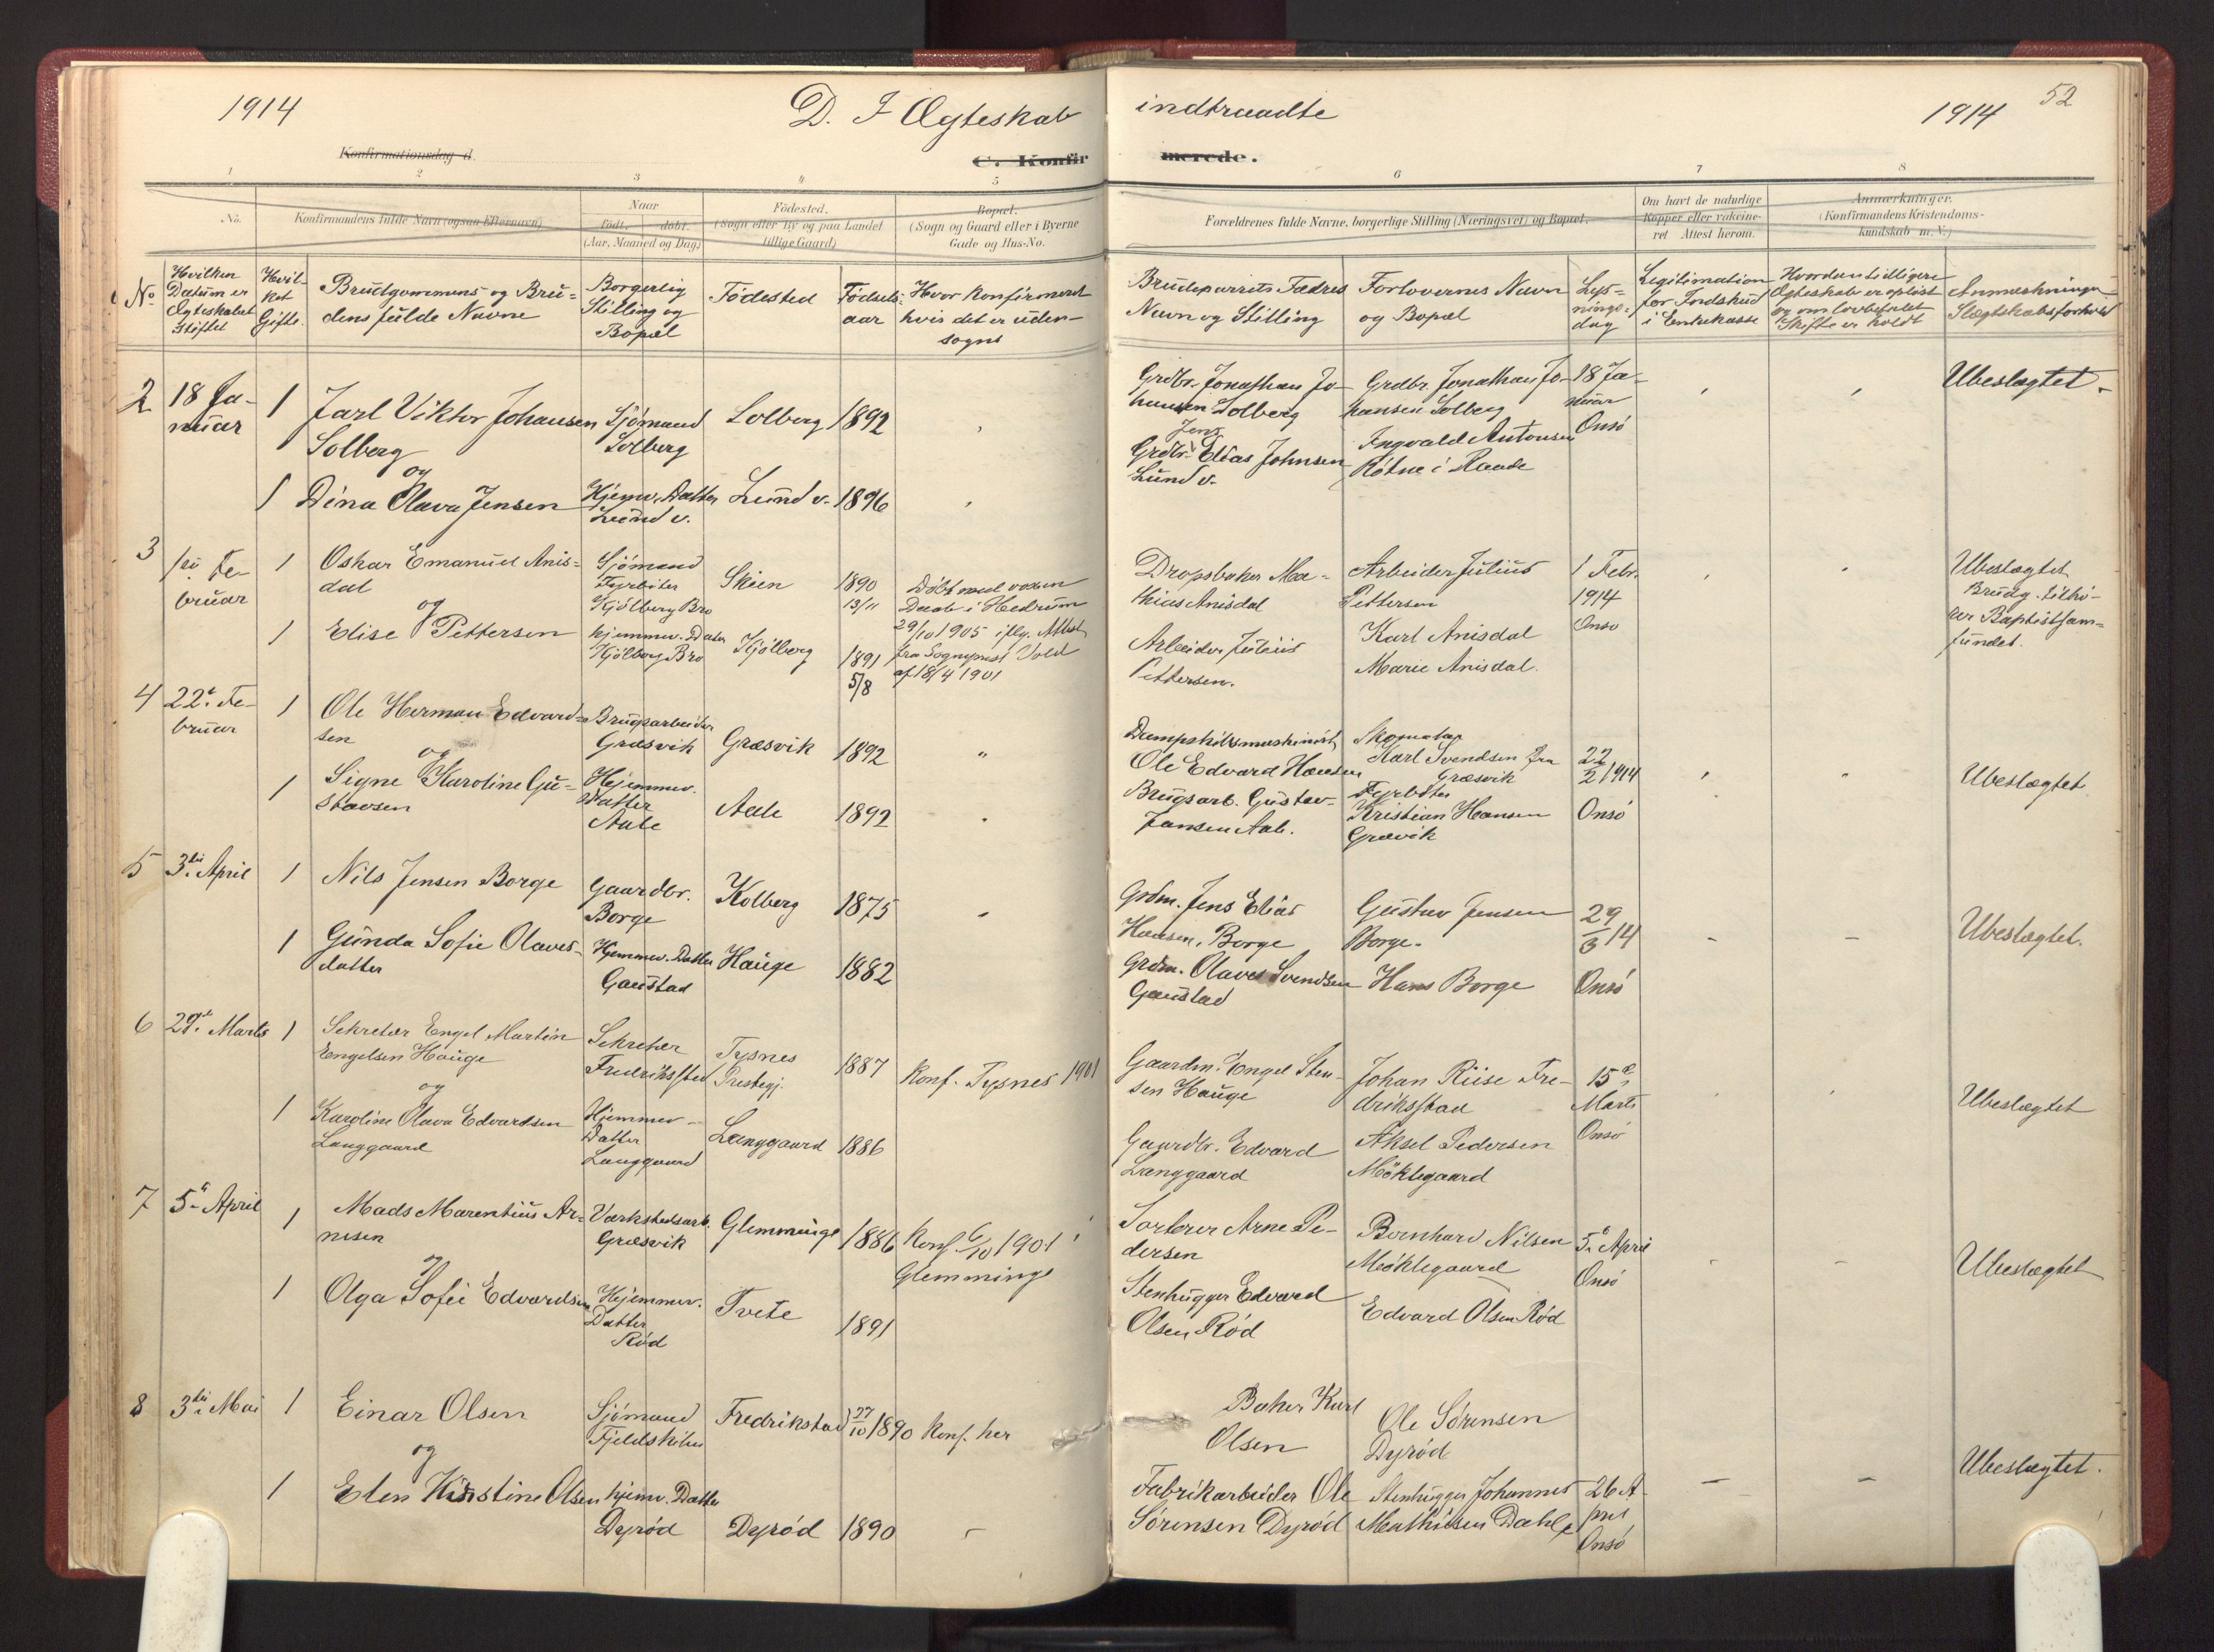 1914
D. I Ægteskab
indtraadte
1914
52
Konfirmationsdag d.
C. Konfir
merede.
1
2
3
4
5
6
7
8
No.
Konfirmandens fulde Navn (ogsaa Efternavn)
Naar
födt. döbt.
(Aar, Maaned og Dag)
Födested.
(Sogn eller By og paa Landet
tillige Gaard)
Bopæl.
(Sogn og Gaard eller i Byerne
Gade og Hus-No.
Forældrenes fulde Navne, borgerlige Stilling (Næringsvei) og Bopæl.
Om havt de naturlige
Kopper eller vakcine-
ret Attest herom.
Anmærkninger.
(Konfirmandens Kristendoms-
kundskab m. V.)
No
Hvilken
Datum er
Ægteskabet
stiftet
Hvil-
ket
Gifte.
Brudgommens og Bru-
dens fulde Navne
Borgerlig
Stilling og
Bopæl
Födested
Födsels-
aar
Hvor Konfirmeret
hvis det er uden-
sogns
Brudeparrets Fædres
Navn og Stilling
Forlovernes Navn
og Bopæl
Lys-
nings-
dag
Legitimation
for Indskud
i Enkekasse
Hvordan tidligere
Ægteskab er opløst
og om lovbefalet
Skifte er holdt
Anmærkninger
Slægtskabsforhold
2
18 Ja-
nuar
1
Jarl Viktor Johansen
Solberg
og
Sjömand
Solberg
Solberg
1892
Grdbr. Jonathan Jo-
hansen Solberg
Grdbr. Jonathan Jo-
hansen Solberg
18 Ja-
nuar
Onsö
Ubeslægtet.
1
Dina Olava Jensen
Hjemv. Datter
Lund v.
Lund v.
1896
Jens
Grdbr. Elias Johnsen
Lund v.
Ingvald Antonsen
Rötne i Raade
3
1ste Fe-
bruar
1
Oskar Emanuel Anis-
dal
og
Sjömand
Fyrböter
Kjölberg Bro
Skien
1890
13/11
Döbt med voxen
Daab i Hedrum
29/10 1905 iflg. Attest
fra Sogneprest Told
af 18/4 1901
Dropsbaker Ma-
thias Anisdal
Arbeider Julius
Pettersen
1 Febr.
1914
Onsö
Ubeslægtet
Brudg. tilhö-
rer Baptistsam-
fundet.
1
Elise Pettersen
hjemmev. Dater
Kjölberg Bro
Kjölberg
1891
5/8
Arbeider Julius
Pettersen.
Karl Anisdal
Marie Anisdal.
4
22de Fe-
bruar
1
Ole Herman Edvard-
sen
og
Brugsarbeider
Græsvik
Græsvik
1892
"
Dampskibsmaskinist
Ole Edvard Hansen
Skomaker
Karl Svendsen fra
Græsvik
22
2 1914
Onsö
Ubeslægtet
1
Signe Karoline Gu-
stavsen
Hjemmev.
Datter
Aale
Aale
1892
Brugsarb. Gustav
Jansen Aale.
Fyrböter
Kristian Hansen
Græsvik
5
3die April
1
Nils Jensen Borge
Gaardbr.
Borge
Kolberg
1875
Grdm. Jens Elias
Hansen, Borge
Gustav Jensen
Borge.
29
3 14
Onsö
Ubeslægtet.
1
Gunda Sofie Olaves-
datter
Hjemmev. Datter
Gaustad
Hauge
1882
Grdm. Olaves Svendsen
Gaustad
Hans Borge
6
29de Marts
1
Sekretær Engel Martin
Engelsen Hauge
og
Sekretær
Fredriksstad
Tysnes
Prestegj.
1887
Konf. Tysnes 1901
Gaardm. Engel Sten-
sen Hauge
Johan Riise Fre-
driksstad
15de
Marts
Onsö
Ubeslægtet
1
Karoline Olava Edvardsen
Langgaard
Hjemmev-
Datter
Langgaard
Langgaard
1886
Gaardbr. Edvard
Langgaard
Aksel Pedersen
Möklegaard
7
5te April
1
Mads Marentius Ar-
nesen
og
Værkstedsarb.
Græsvik
Glemminge
1886
Konf. 6/10 1901 i
Glemminge
Sorterer Arne Pe-
dersen
Bernhard Nilsen
Möklegaard
5te April
Onsö
Ubeslægtet
1
Olga Sofie Edvardsen
Hjemmev.
Datter
Röd
Tvete
1891
Stenhugger Edvard
Olsen Röd
Edvard Olsen Röd
8
3die Mai
1
Einar Olsen
og
Sjömand
Fjeldskilen
Fredrikstad
27/10 1890
Konf. her
Baker Karl
Olsen
Ole Sörensen
Dyröd
Ubeslægtet.
1
Elen Kristine Olsen
hjemv. Datter
Dyröd
Dyröd
1890
Fabrikarbeider Ole
Sörensen Dyröd
Stenhugger Johannes
Mathisen Dahle
26 A-
pril
Onsö